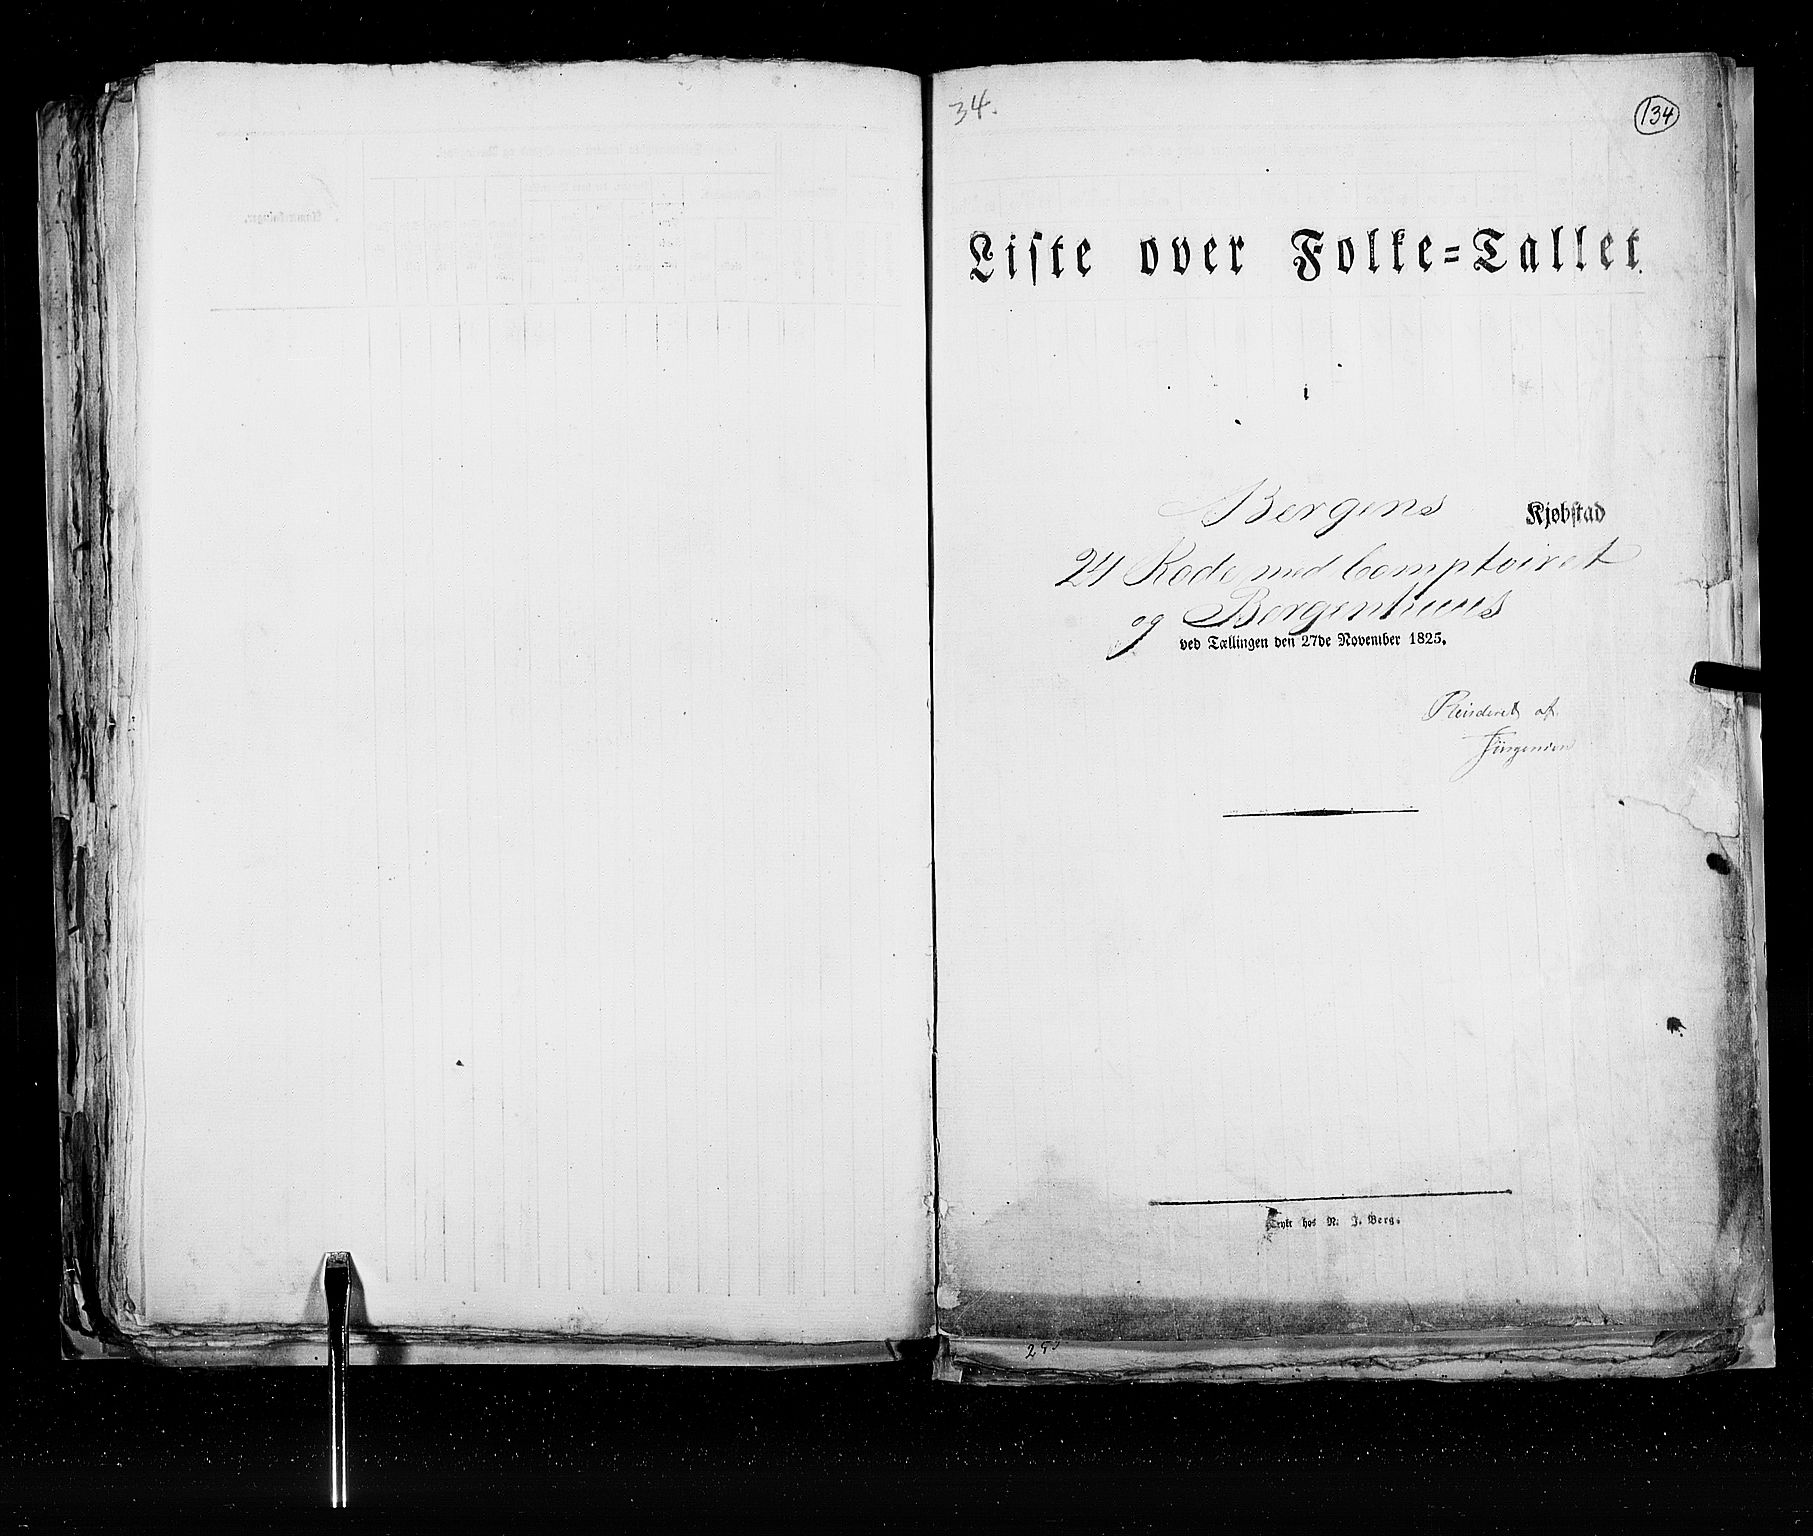 34.
134
Liste over Folke=Tallet
i
Bergens Kjøbstad
24 Rode med Comptoiret
og Bergenhuus
ved Tællingen den 27de November 1825.
Revideret af
Jürgensen
Trykt hos N. J. Berg.